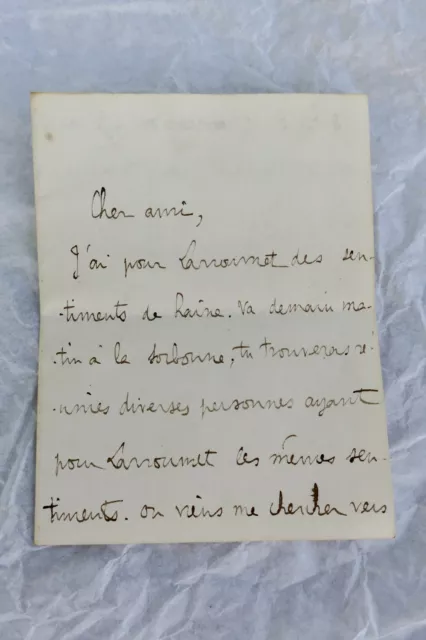 Cher ami,
J'ai pour Larroumet des sen-
-timents de haine. Va demain ma-
-tin à la Sorbonne, tu trouveras ré-
-unies diverses personnes ayant
pour Larroumet les mêmes sen-
timents. ou viens me chercher vers